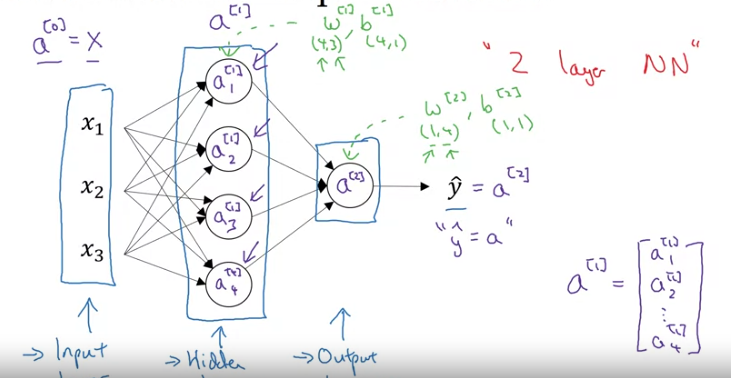 a^[0] = X
a^[1]
w^[1], b^[1]
(4,3) (4,1)
"2 layer NN"
x₁
x₂
x₃
a₁^[1]
a₂^[1]
a₃^[1]
a₄^[4]
w^[2], b^[2]
(1,4) (1,1)
a^[2]
ŷ = a^[2]
"ŷ = a"
a^[1] = [a₁^[1]
a₂^[1]
⋮
a₄^[1]]
→ Input
→ Hidden
→ Output